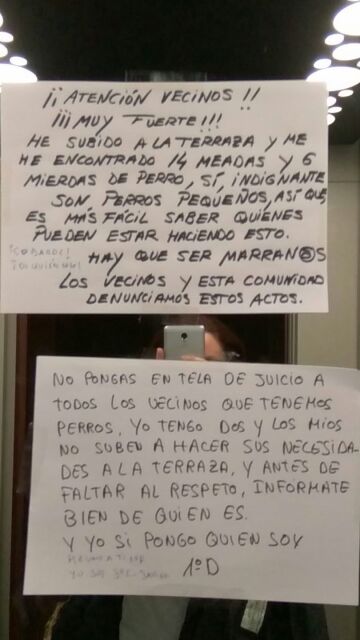 ¡¡ATENCIÓN VECINOS!!
¡¡¡MUY FUERTE!!!
HE SUBIDO A LA TERRAZA Y ME
HE ENCONTRADO 14 MEADAS Y 6
MIERDAS DE PERRO, SÍ, INDIGNANTE
SON PERROS PEQUEÑOS, ASÍ QUE,
ES MÁS FÁCIL SABER QUIENES
PUEDEN ESTAR HACIENDO ESTO.
HAY QUE SER MARRAN@S
LOS VECINOS Y ESTA COMUNIDAD
DENUNCIAMOS ESTOS ACTOS.
NO PONGAS EN TELA DE JUICIO A
TODOS LOS VECINOS QUE TENEMOS
PERROS, YO TENGO DOS Y LOS MIOS
NO SUBEN A HACER SUS NECESIDA-
DES A LA TERRAZA, Y ANTES DE
FALTAR AL RESPETO, INFORMATE
BIEN DE QUIEN ES.
Y YO SI PONGO QUIEN SOY
1º D